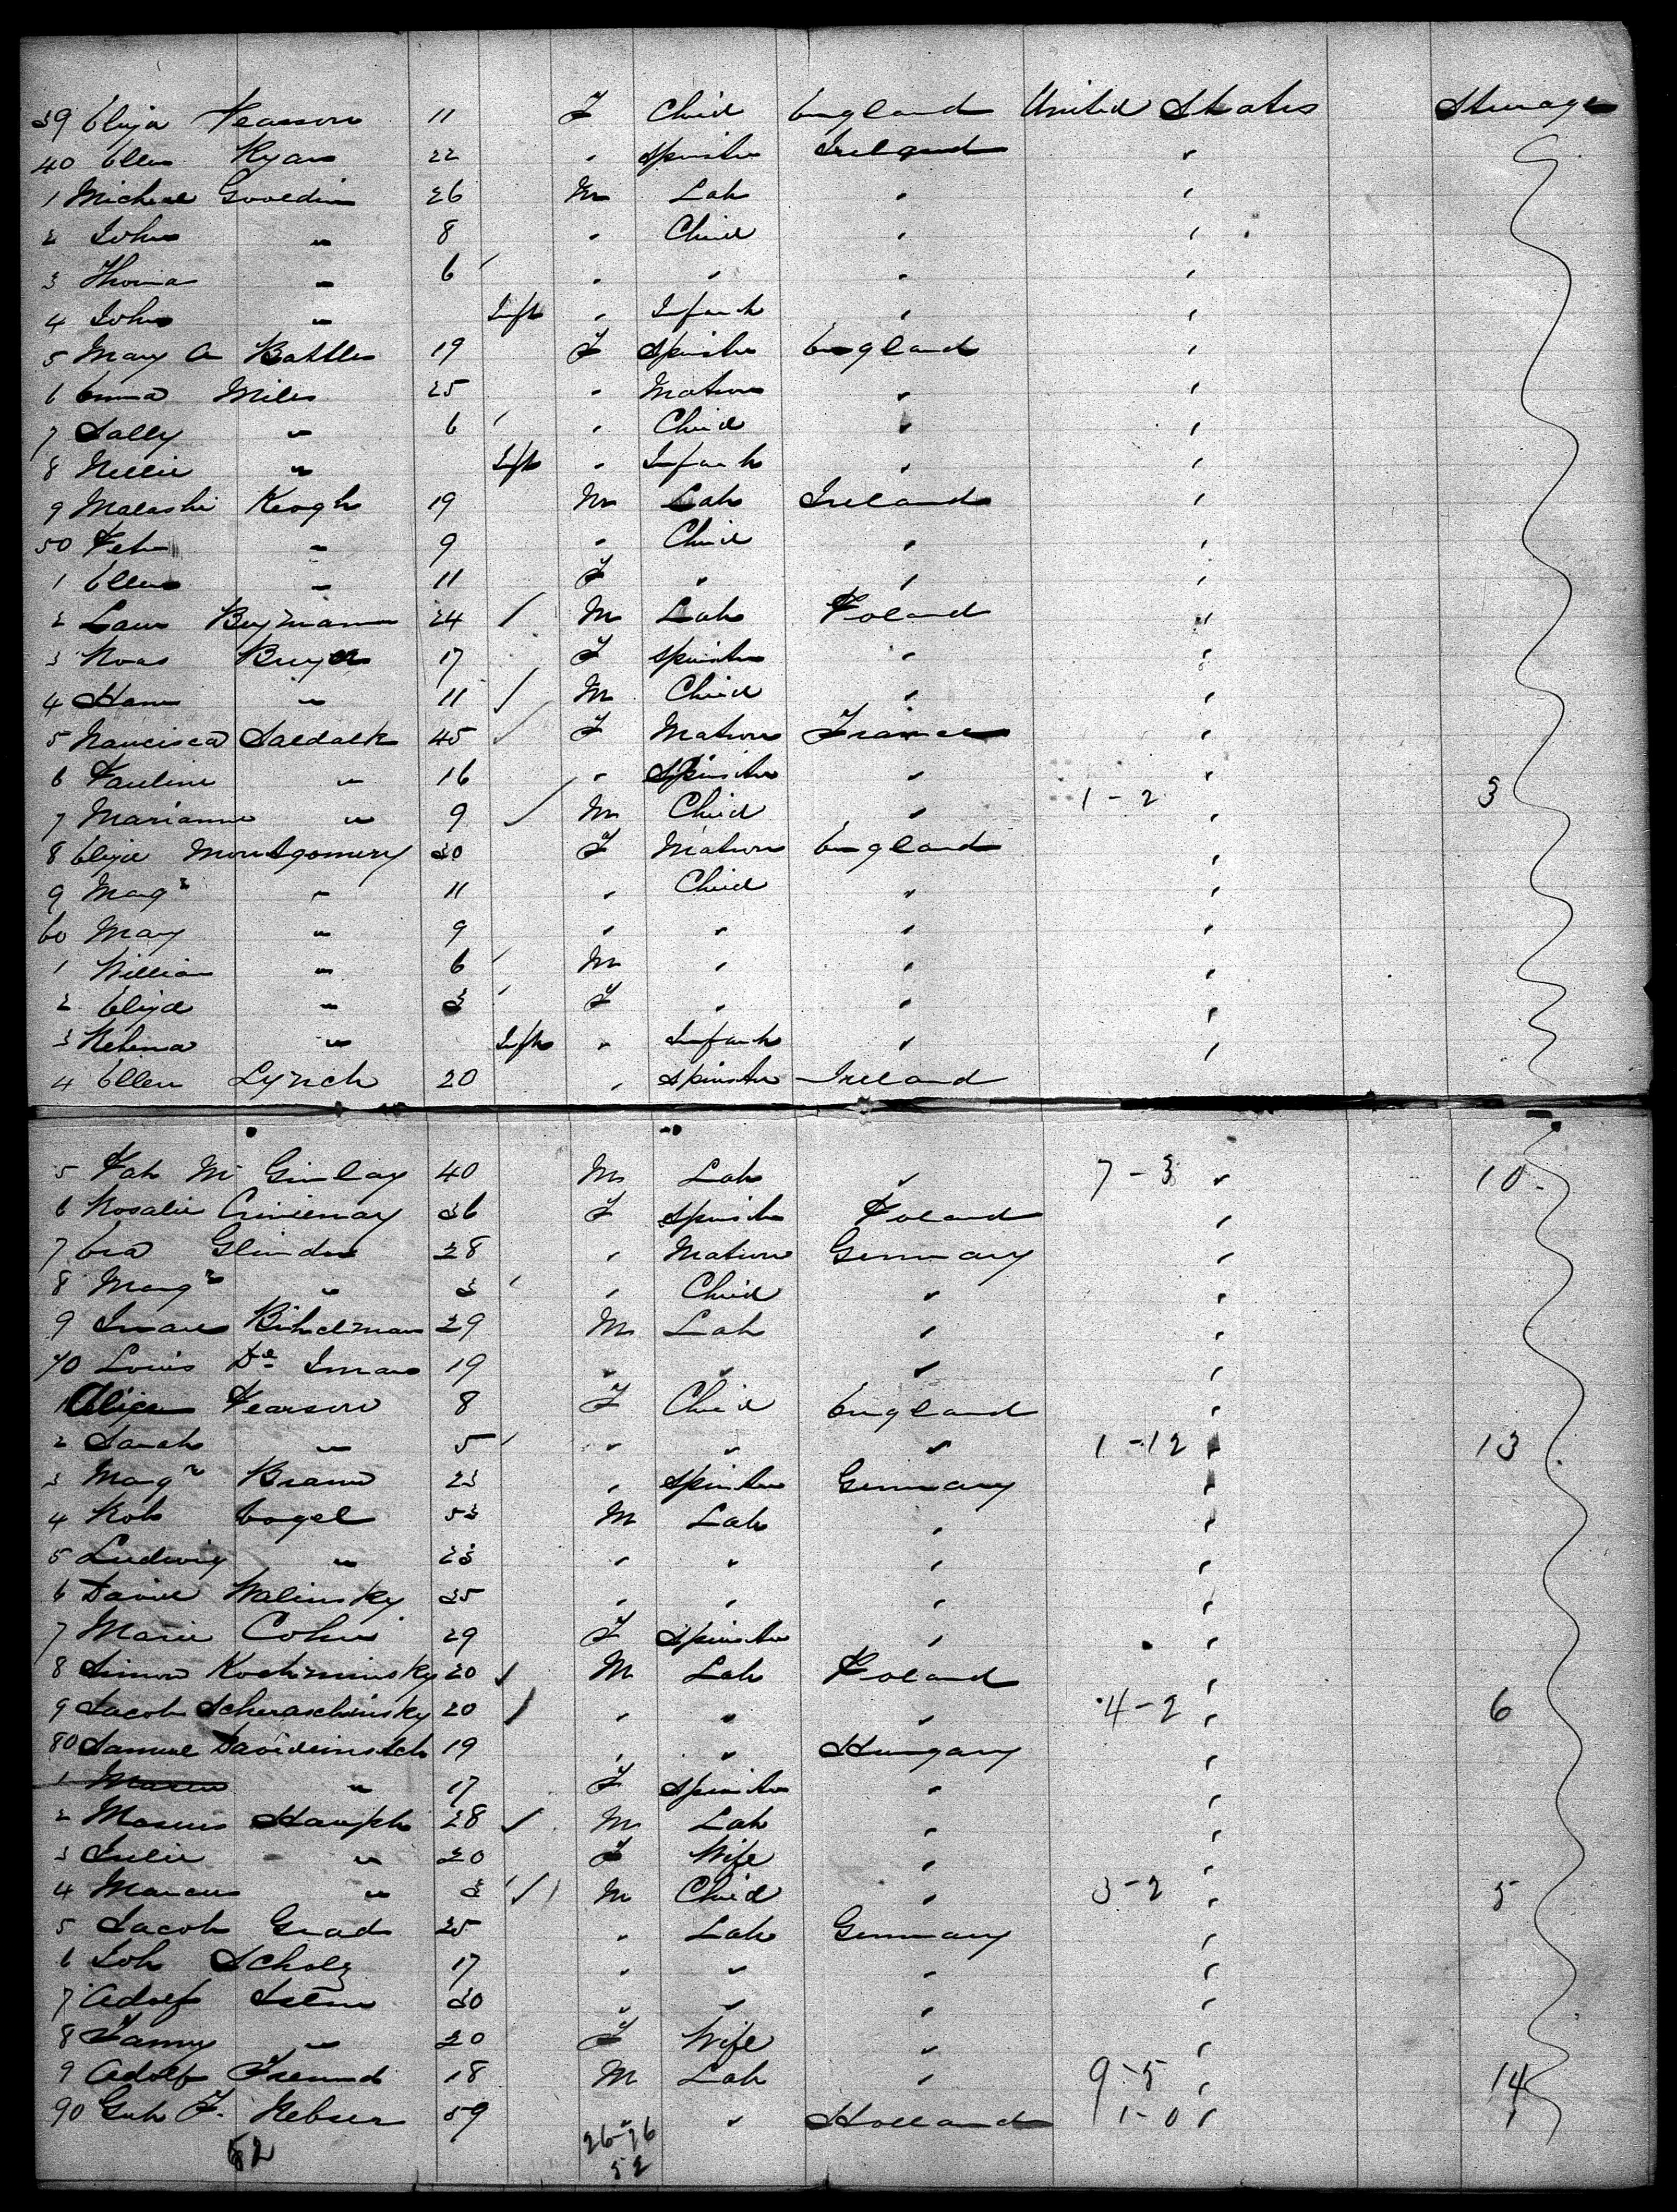 39 Eliza Pearson 11 F Child England United States Steerage
40 Ellen Ryan 22 " Spinster Ireland "
1 Michael 26 M Lab " "
2 John " 8 " Child " "
3 Thomas " 6 " " " "
4 John " Inft " Infant " "
5 Mary A Battles 19 F Spinster England "
6 Emma Miles 25 " Matron " "
7 Sally " 6 " Child " "
8 Nellie " Inft " Infant " "
9 Malachi Keogh 19 M Lab Ireland "
50 Peter " 9 " Child " "
1 Ellen " 11 F " " "
2 24 M Lab Poland "
3 17 F Spinster " "
4 " 11 M Child " "
5 45 F Matron France "
6 Pauline " 16 " Spinster " "
7 Marianne " 9 M Child " 1-2 " 3
8 Eliza Montgomery 30 F Matron England "
9 Margt " 11 " Child " "
60 Mary " 9 " " " "
1 William " 6 M " " "
2 Eliza " 3 F " " "
3 " Inft " Infant " "
4 Ellen Lynch 20 " Spinster Ireland
5 Pat Mc Ginlay 40 M Lab " 7-3 " 10
6 Rosalie 36 F Spinster Poland "
7 Eva 28 " Matron Germany "
8 Margt " 3 " Child " "
9 29 M Lab " "
70 Louis De 19 " " " "
1 Alice Pearson 8 F Child England "
2 Sarah " 5 " " " 1-12 " 13
3 Margt Brand 23 " Spinster Germany "
4 Rob Vogel 53 M Lab " "
5 Ludwig " 23 " " " "
6 David Walinsky 35 " " " "
7 Marie Cohn 29 F Spinster " "
8 Simon Kochminsky 20 M Lab Poland "
9 Jacob Scheraschinsky 20 " " " 4-2 " 6
80 Samuel 19 " " Hungary "
1 " 17 F Spinster " "
2 28 M Lab " "
3 Julie " 20 F Wife " "
4 Marcus " 3 M Child " 3-2 " 5
5 Jacob Grad 25 " Lab Germany "
6 Joh Scholz 17 " " " "
7 Adolf Stern 30 " " " "
8 Fanny " 20 F Wife " "
9 Adolf Freund 18 M Lab " 9-5 " 14
90 F. 59 " " Holland 1-0 " 1
52 26-26
52